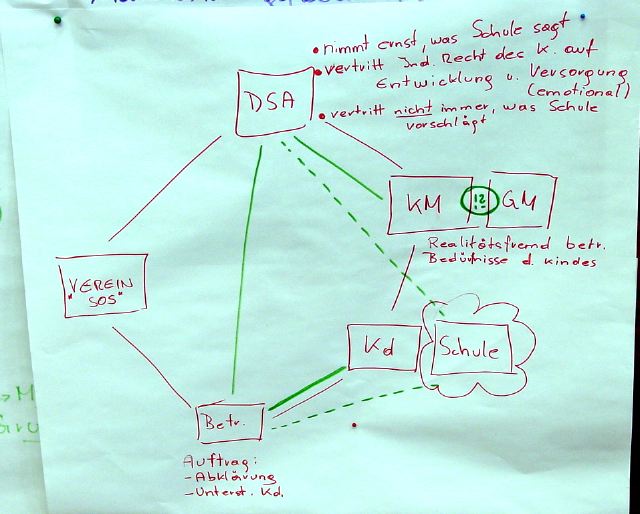 • nimmt ernst, was Schule sagt
• vertritt Ind. Recht des K. auf
Entwicklung u. Versorgung
(emotional)
• vertritt nicht immer, was Schule
vorschlägt
DSA
KM
12
GM
Realitätsfremd betr.
Bedüfnisse d. Kindes
VEREIN
"SOS"
Kd
Schule
Betr.
Auftrag:
- Abklärung
- Unterst. Kd.
→ M
Gru